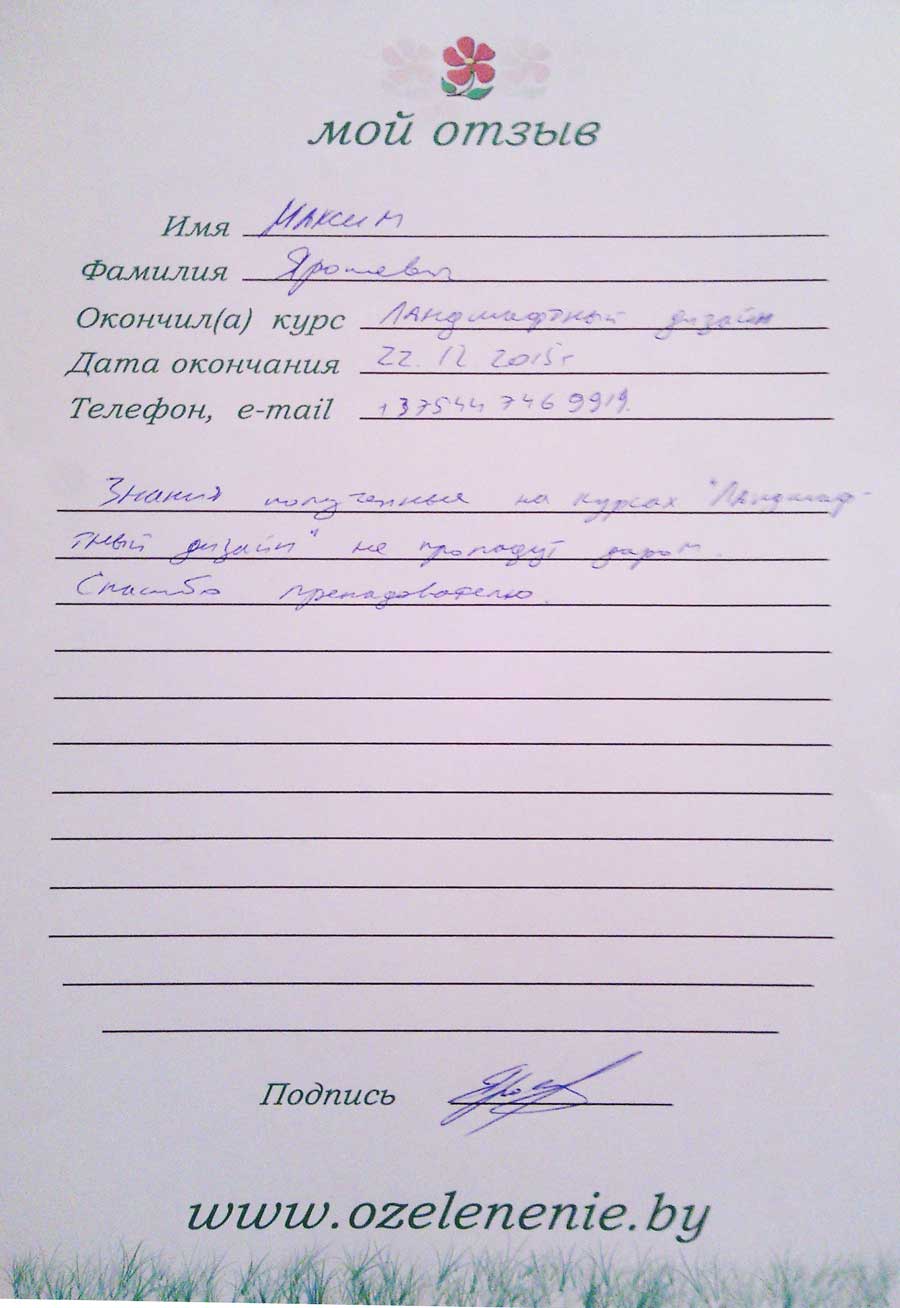 мой отзыв
Имя Максим
Фамилия Ярошевич
Окончил(а) курс Ландшафтный дизайн
Дата окончания 22.12 2015г
Телефон, e-mail +37544 746 9919.
Знания полученные на курсах "Ландшаф-
тный дизайн" не пропадут даром.
Спасибо преподователю.
Подпись
www.ozelenenie.by